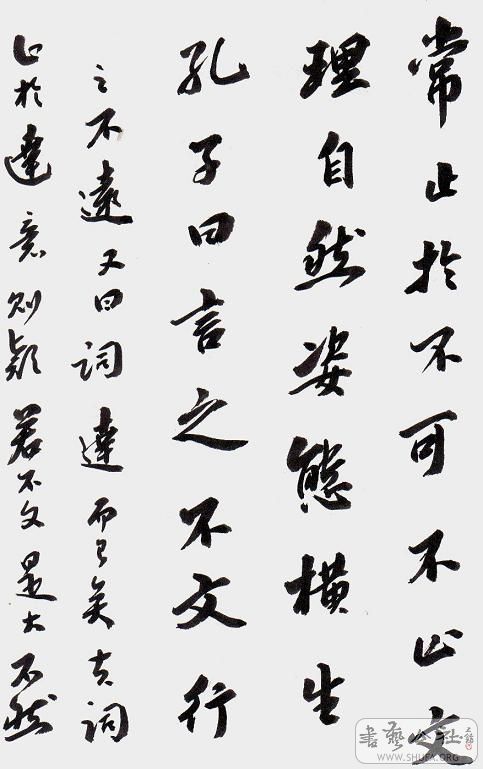 常止於不可不止文
理自然姿態横生
孔子曰言之不文行
之不遠又曰詞達而已矣夫詞
止於達意則疑若不文是大不然
書藝公社
WWW.SHUFA.ORG